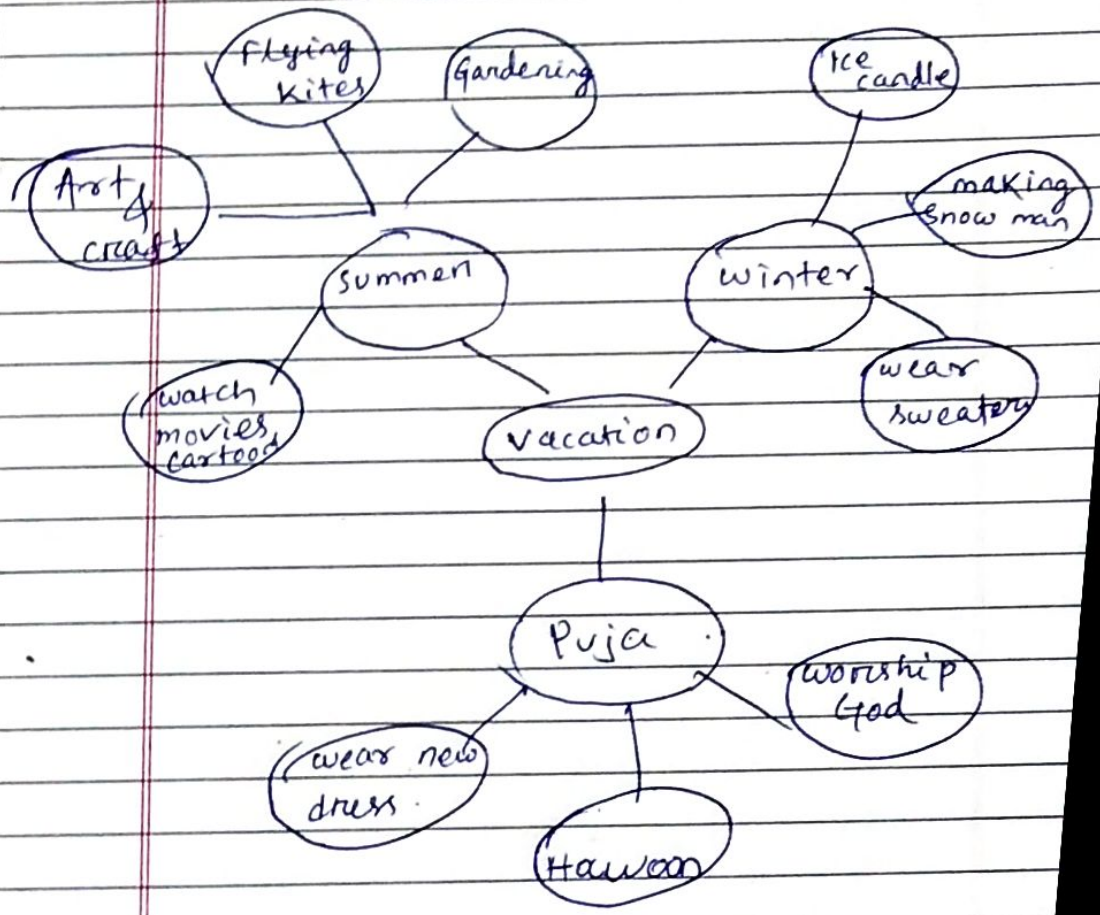 Flying
Kites
Gardening
Ice
candle
Art
&
craft
making
snow man
summer
winter
watch
movies,
cartoon
wear
sweater
vacation
Puja
worship
God
wear new
dress.
Hawoon